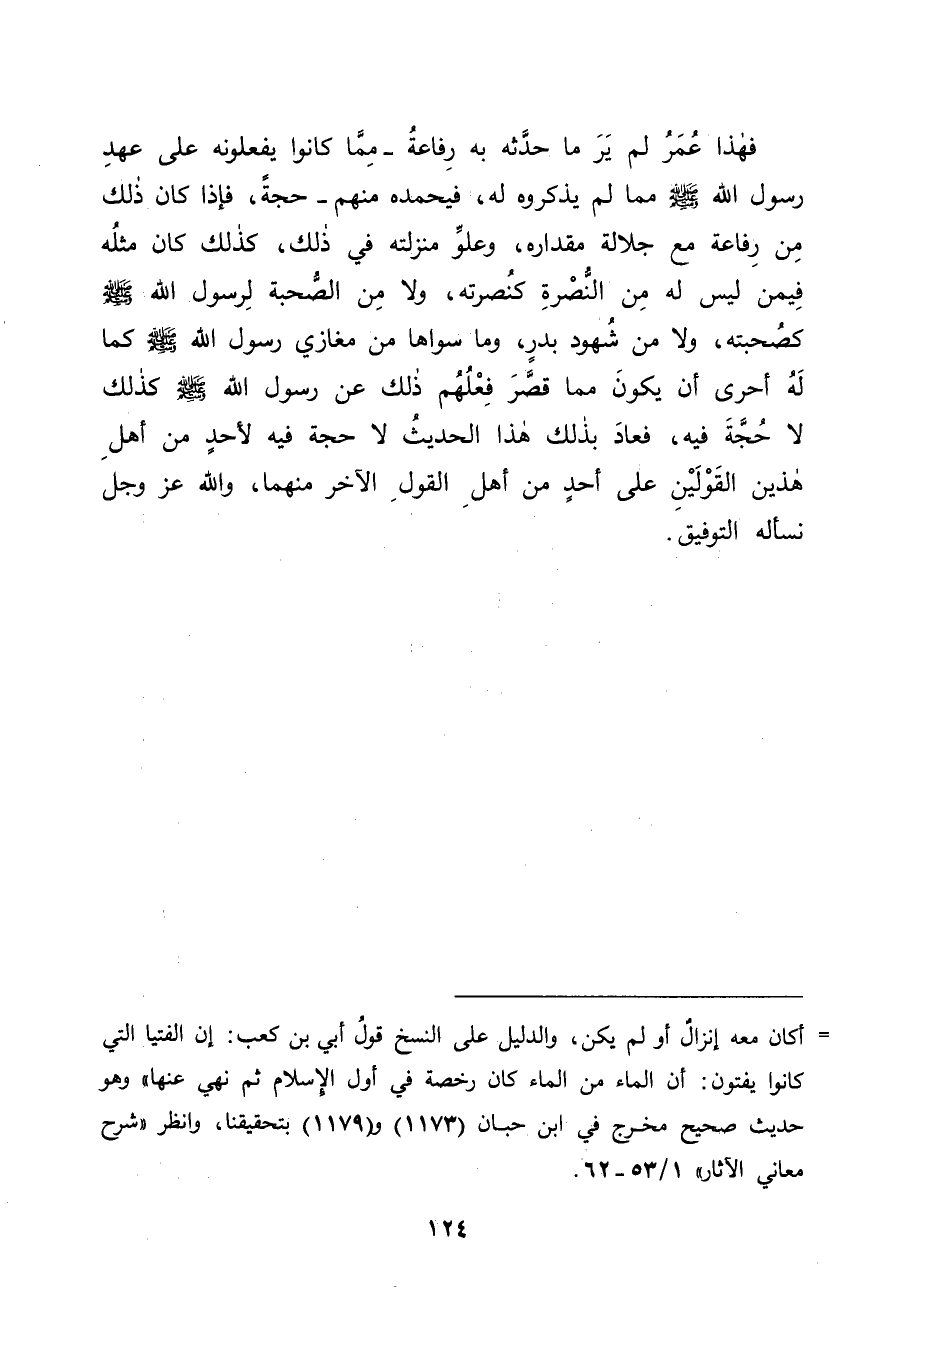 فهٰذا عُمَرُ لم يَرَ ما حدَّثه به رِفاعةُ ـ مِمَّا كانوا يفعلونه على عهدِ
رسول الله ﷺ مما لم يذكروه له، فيحمده منهم ـ حجةً، فإذا كان ذٰلك
مِن رِفاعة مع جلالة مقداره، وعلوِّ منزلته في ذٰلك، كذٰلك كان مثلُه
فِيمن ليس له مِن النُّصْرةِ كنُصرته، ولا مِن الصُّحبة لِرسول الله ﷺ
كصُحبته، ولا من شُهود بدرٍ، وما سواها من مغازي رسول الله ﷺ كما
لَهُ أحرى أن يكونَ مما قصَّرَ فِعْلُهُم ذٰلك عن رسول الله ﷺ كذٰلك
لا حُجَّةَ فيه، فعادَ بذٰلك هٰذا الحديثُ لا حجة فيه لأحدٍ من أهلِ
هٰذين القَوْلَيْنِ على أحدٍ من أهلِ القولِ الآخر منهما، والله عز وجل
نسأله التوفيق.
= أكان معه إنزالٌ أو لم يكن، والدليل على النسخ قولُ أبي بن كعب: إن الفتيا التي
كانوا يفتون: أن الماء من الماء كان رخصة في أول الإسلام ثم نهي عنها» وهو
حديث صحيح مخرج في ابن حبان (١١٧٣) و(١١٧٩) بتحقيقنا، وانظر «شرح
معاني الآثار» ١/٥٣ـ٦٢.
١٢٤